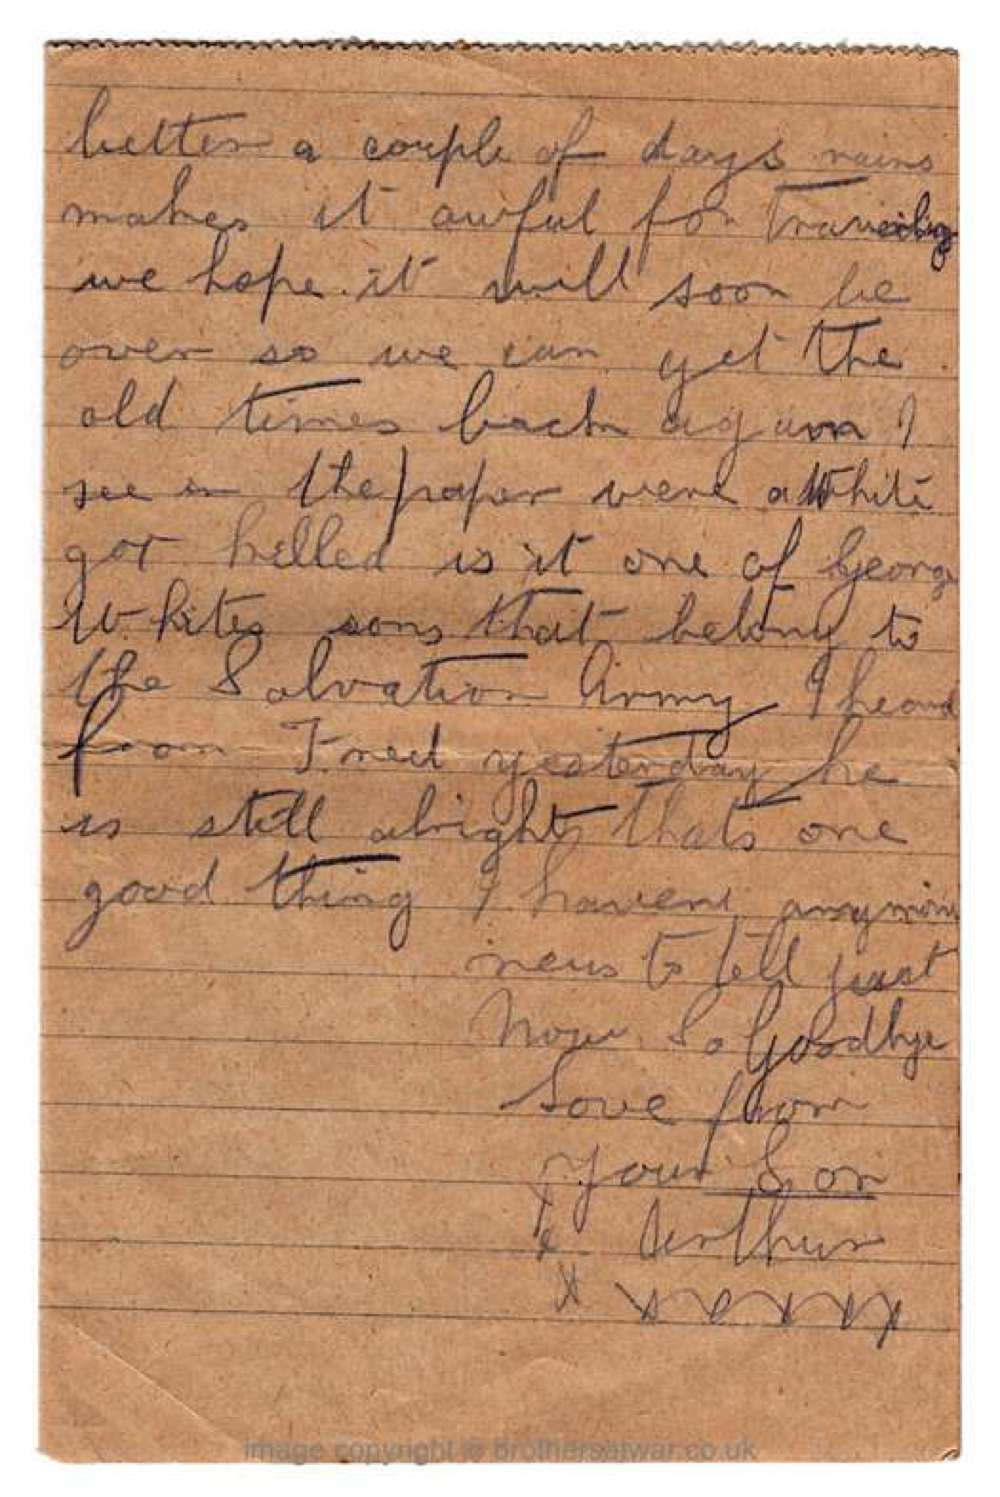 better a couple of days rains
makes it awful for Traveling
we hope it will soon be
over so we can get the
old times back again I
see in the paper were a White
got killed is it one of George
Whites sons that belong to
the Salvation Army I heard
from Fred yesterday he
is still alright thats one
good thing I havent anymore
news to tell just
Now So Goodbye
Love from
Your Son
x Arthur
x x x x x x
image copyright © Brothersatwar.co.uk